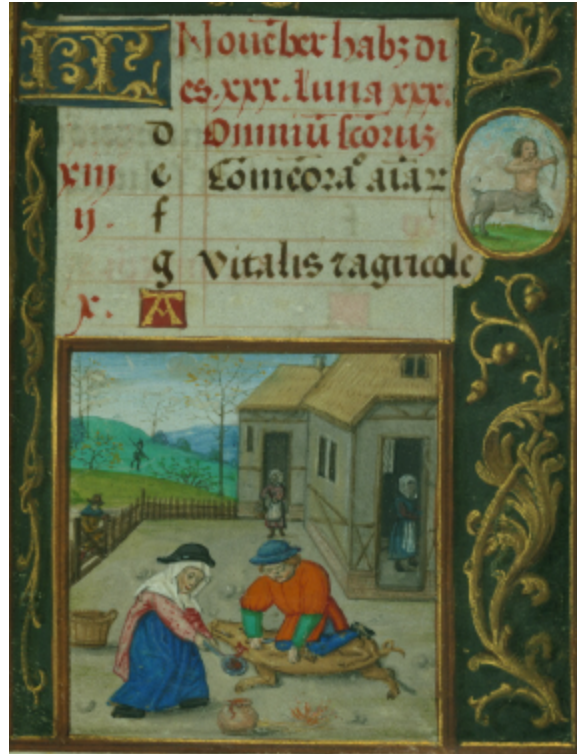 KL Nouēber habꝫ di
es.xxx.Luna xxx.
d Omniū scōruꝫ
xiij e Comēoraᵒ aīaꝝ
ij. f
g Vitalis ⁊ agricole
x. A